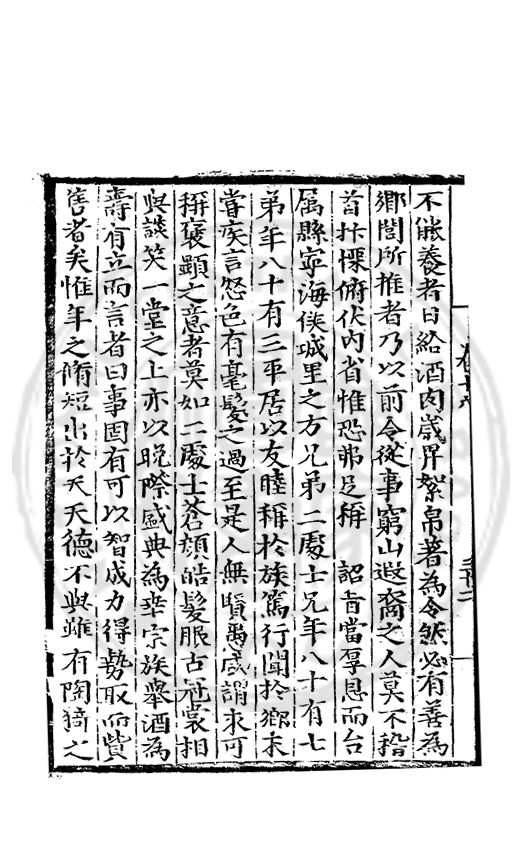 不能養者日給酒肉歲畀絮帛著為令然必有善為
鄉閭所推者乃以前令從事窮山遐裔之人莫不稽
首抃慄俯伏內省惟恐弗足稱 詔旨當厚恩而台
属縣寧海侯城里之方兄弟二處士兄年八十有七
弟年八十有三平居以友睦稱於族篤行聞於鄉未
嘗疾言怒色有毫髮之過至是人無賢愚咸謂求可
稱褒顯之意者莫如二處士蒼顏皓髮服古冠裳相
與談笑一堂之上亦以晚際盛典為幸宗族舉酒為
壽有立而言者曰事固有可以智成力得勢取而貲
售者矣惟年之脩短出於天天德不與雖有陶猗之